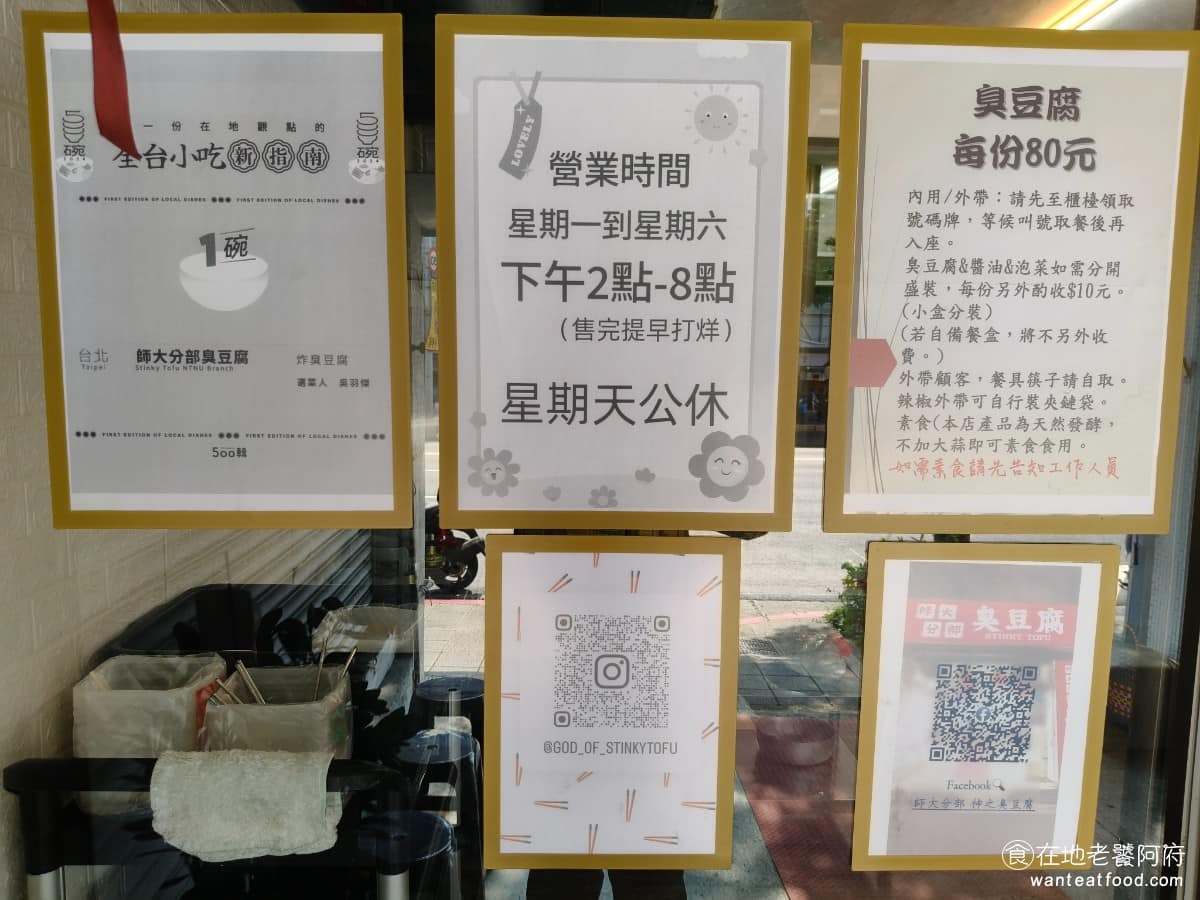 一份在地觀點的
全台小吃新指南
5碗
5碗
FIRST EDITION OF LOCAL DISHES FIRST EDITION OF LOCAL DISHES
1碗
台北
Taipei
師大分部臭豆腐
Stinky Tofu NTNU Branch
炸臭豆腐
選菜人 吳羽傑
FIRST EDITION OF LOCAL DISHES FIRST EDITION OF LOCAL DISHES
500輯
LOVELY
營業時間
星期一到星期六
下午2點-8點
(售完提早打烊)
星期天公休
臭豆腐
每份80元
內用/外帶：請先至櫃檯領取
號碼牌，等候叫號取餐後再
入座。
臭豆腐&醬油&泡菜如需分開
盛裝，每份另外酌收$10元。
(小盒分裝)
(若自備餐盒，將不另外收
費。)
外帶顧客，餐具筷子請自取。
辣椒外帶可自行裝夾鏈袋。
素食(本店產品為天然發酵，
不加大蒜即可素食食用。
如需素食請先告知工作人員
@GOD_OF_STINKYTOFU
師大
分部
臭豆腐
STINKY TOFU
Facebook
師大分部 神之臭豆腐
食在地老饕阿府
wanteatfood.com